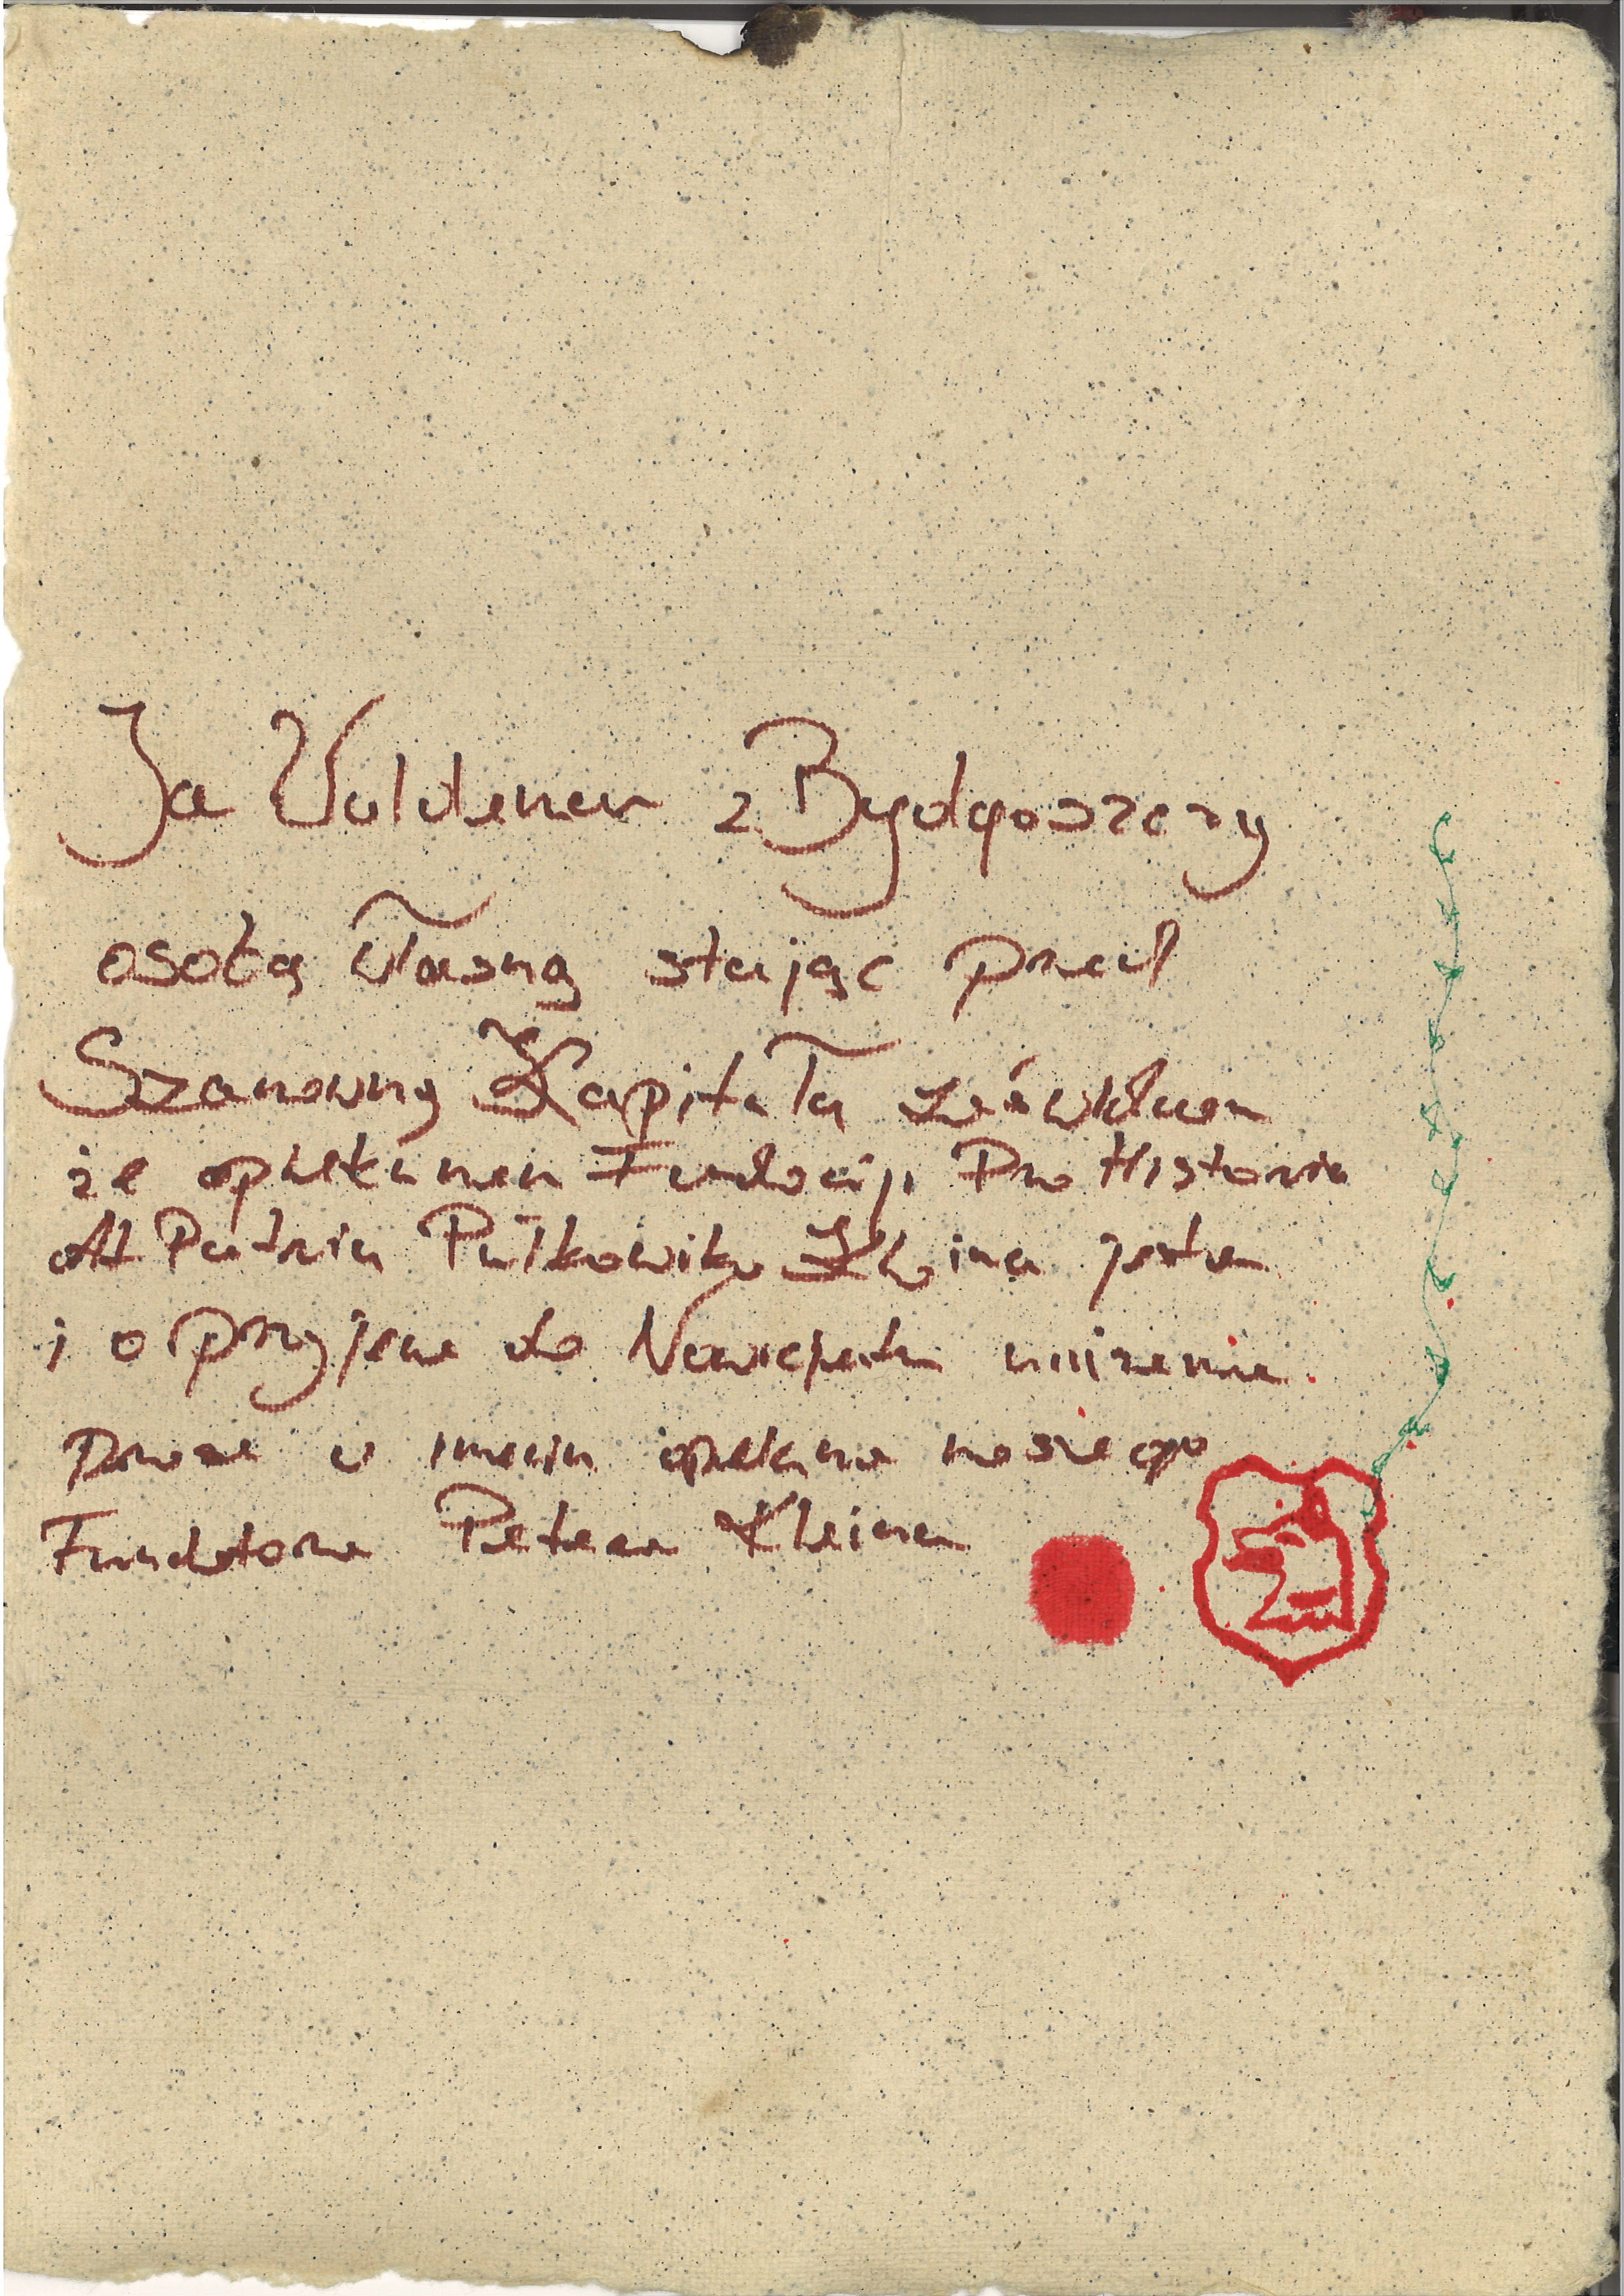 Ja Voldemar z Bydgoszczy
osobą własną stając przed
Szanowną Kapitułą
że opiekunem Fundacji Pro Historia
Et Patria Pułkownika jestem
i o przyjęcie do Nowicjatu uniżenie
Proszę w imieniu opiekuna naszego
Fundatora Petera Kleina